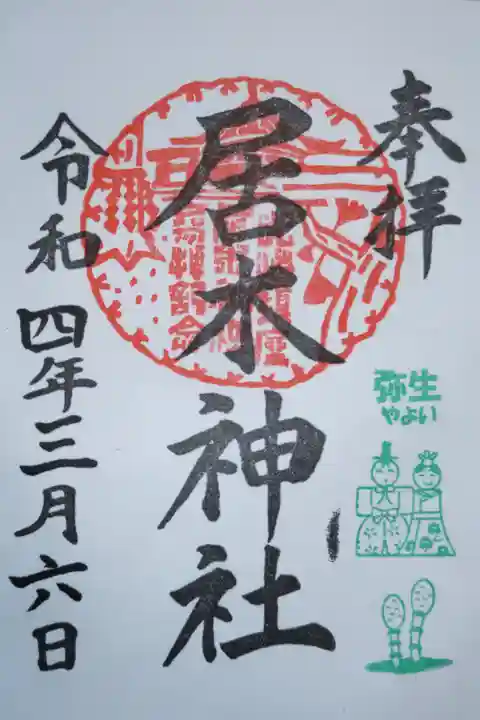 奉拝
弥生
やよい
居木神社
令和四年三月六日